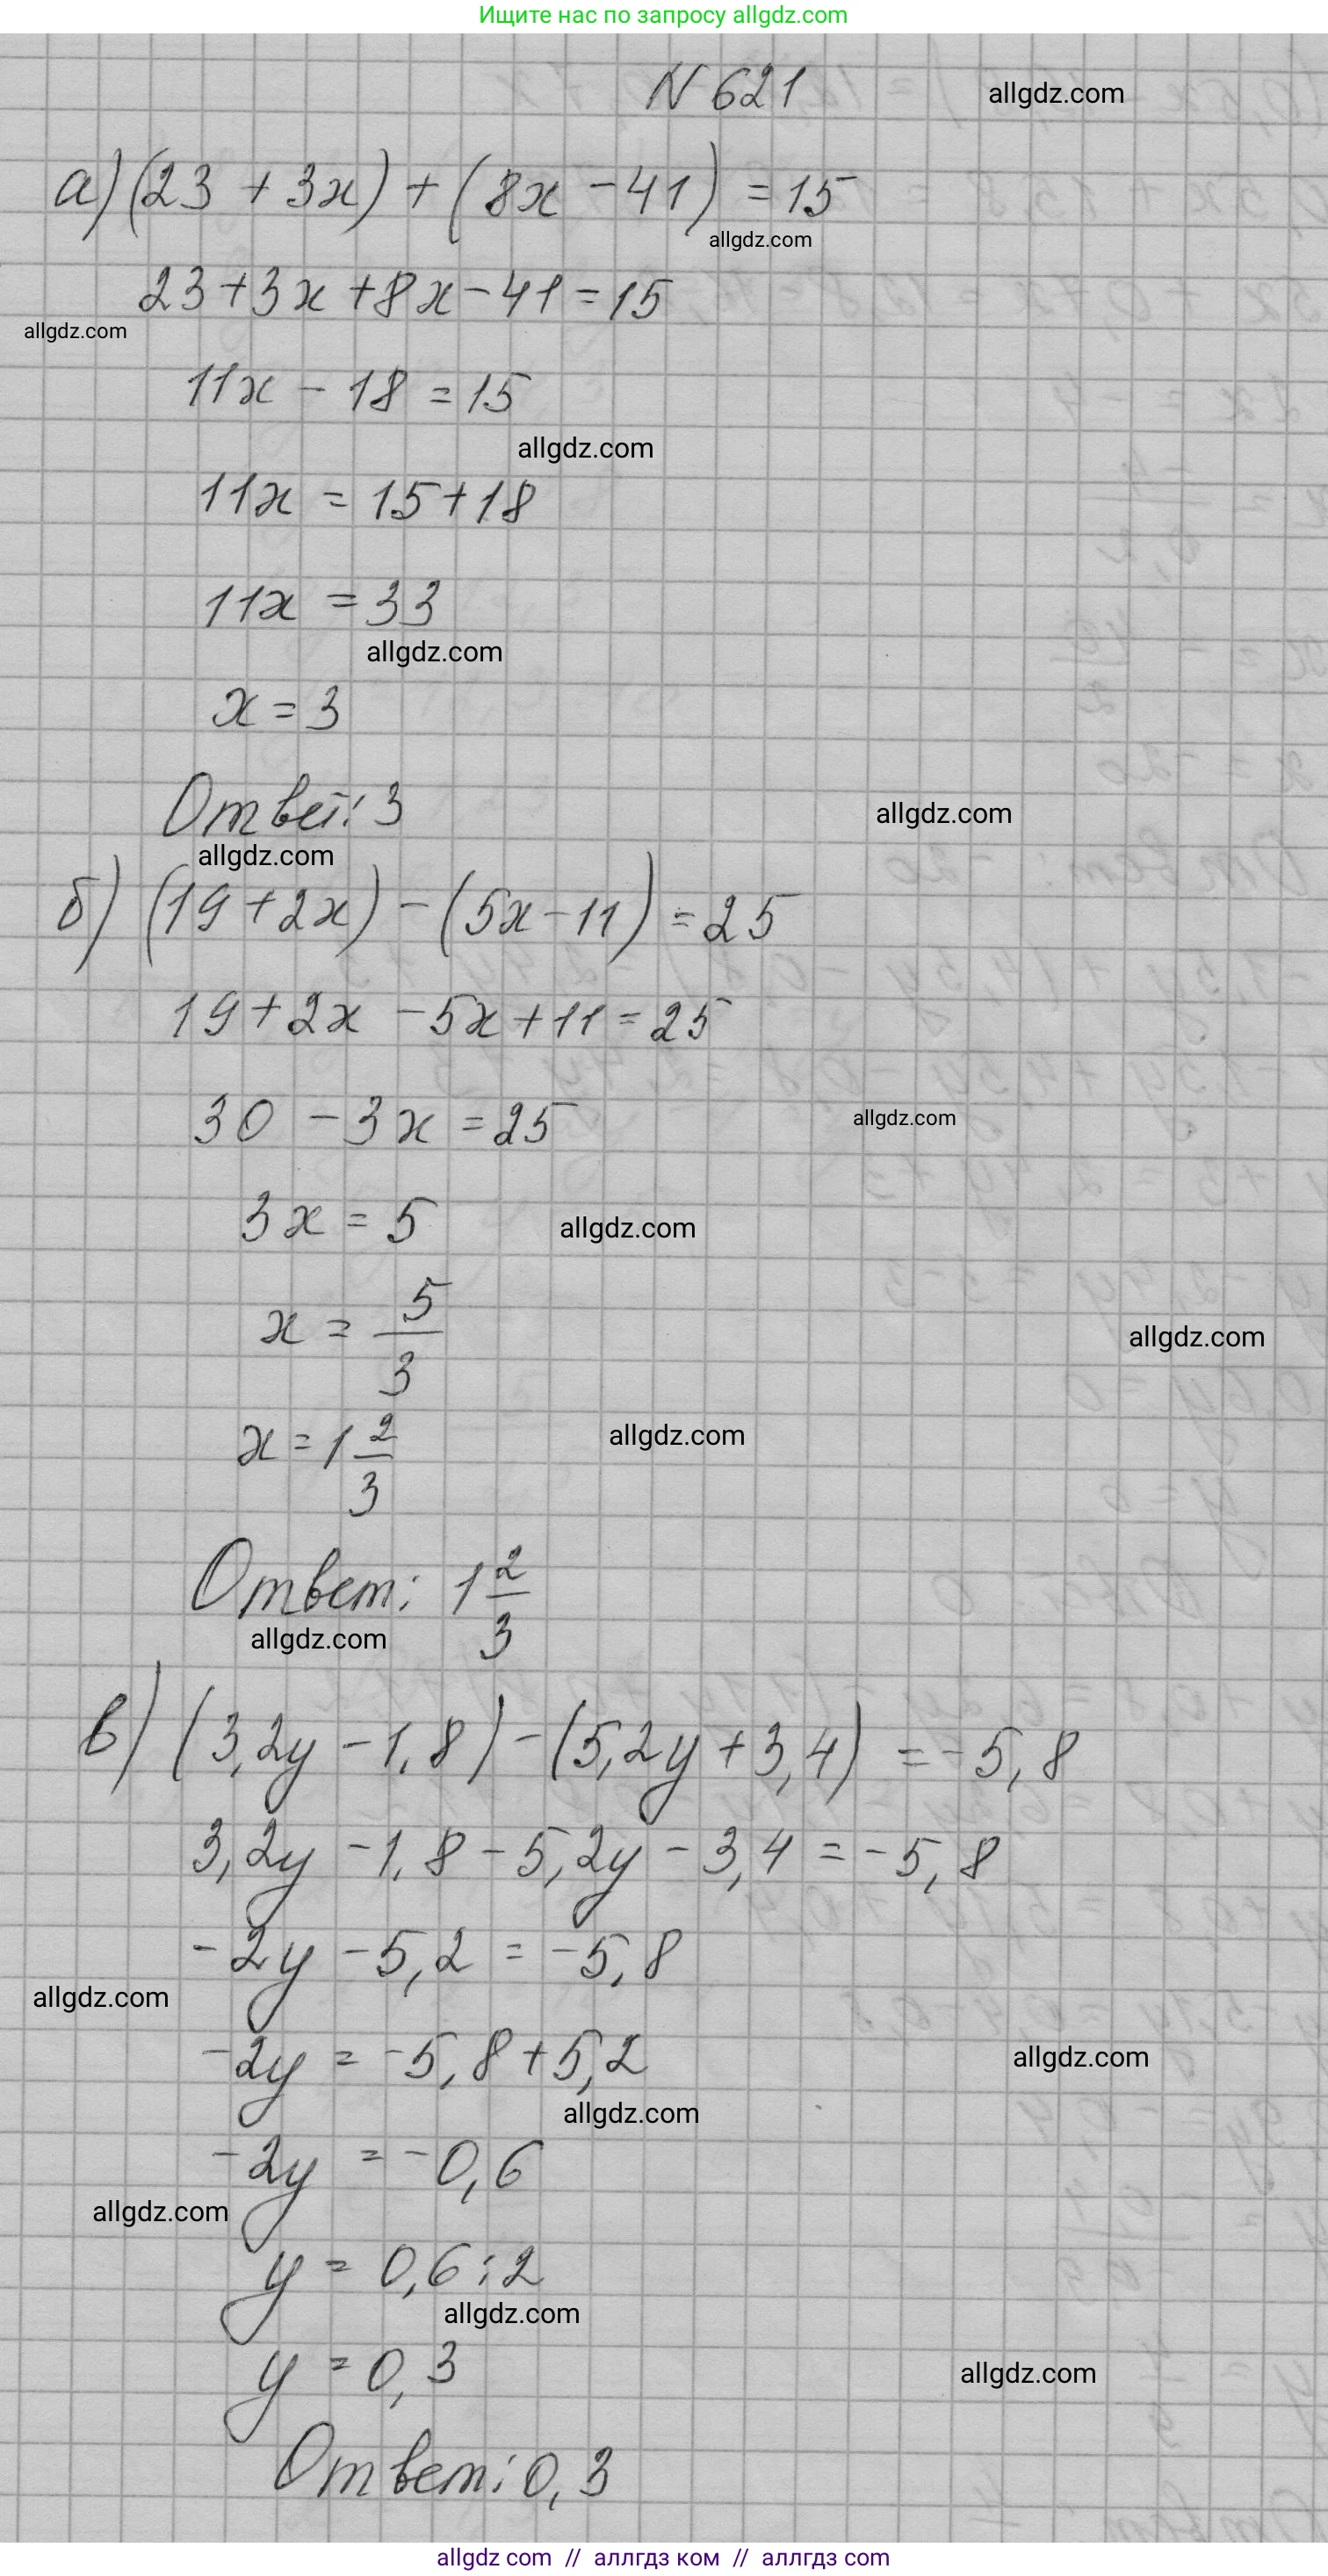 Ищите нас по запросу allgdz.com
N 621
allgdz.com
а) (23 + 3x) + (8x - 41) = 15
allgdz.com
23 + 3x + 8x - 41 = 15
allgdz.com
11x - 18 = 15
allgdz.com
11x = 15 + 18
11x = 33
allgdz.com
x = 3
Ответ: 3
allgdz.com
allgdz.com
б) (19 + 2x) - (5x - 11) = 25
19 + 2x - 5x + 11 = 25
30 - 3x = 25
allgdz.com
3x = 5
allgdz.com
x = 5/3
allgdz.com
x = 1 2/3
allgdz.com
Ответ: 1 2/3
allgdz.com
в) (3,2y - 1,8) - (5,2y + 3,4) = -5,8
3,2y - 1,8 - 5,2y - 3,4 = -5,8
-2y - 5,2 = -5,8
allgdz.com
-2y = -5,8 + 5,2
allgdz.com
allgdz.com
-2y = -0,6
allgdz.com
y = 0,6 : 2
allgdz.com
y = 0,3
allgdz.com
Ответ: 0,3
allgdz com // аллгдз ком // аллгдз com